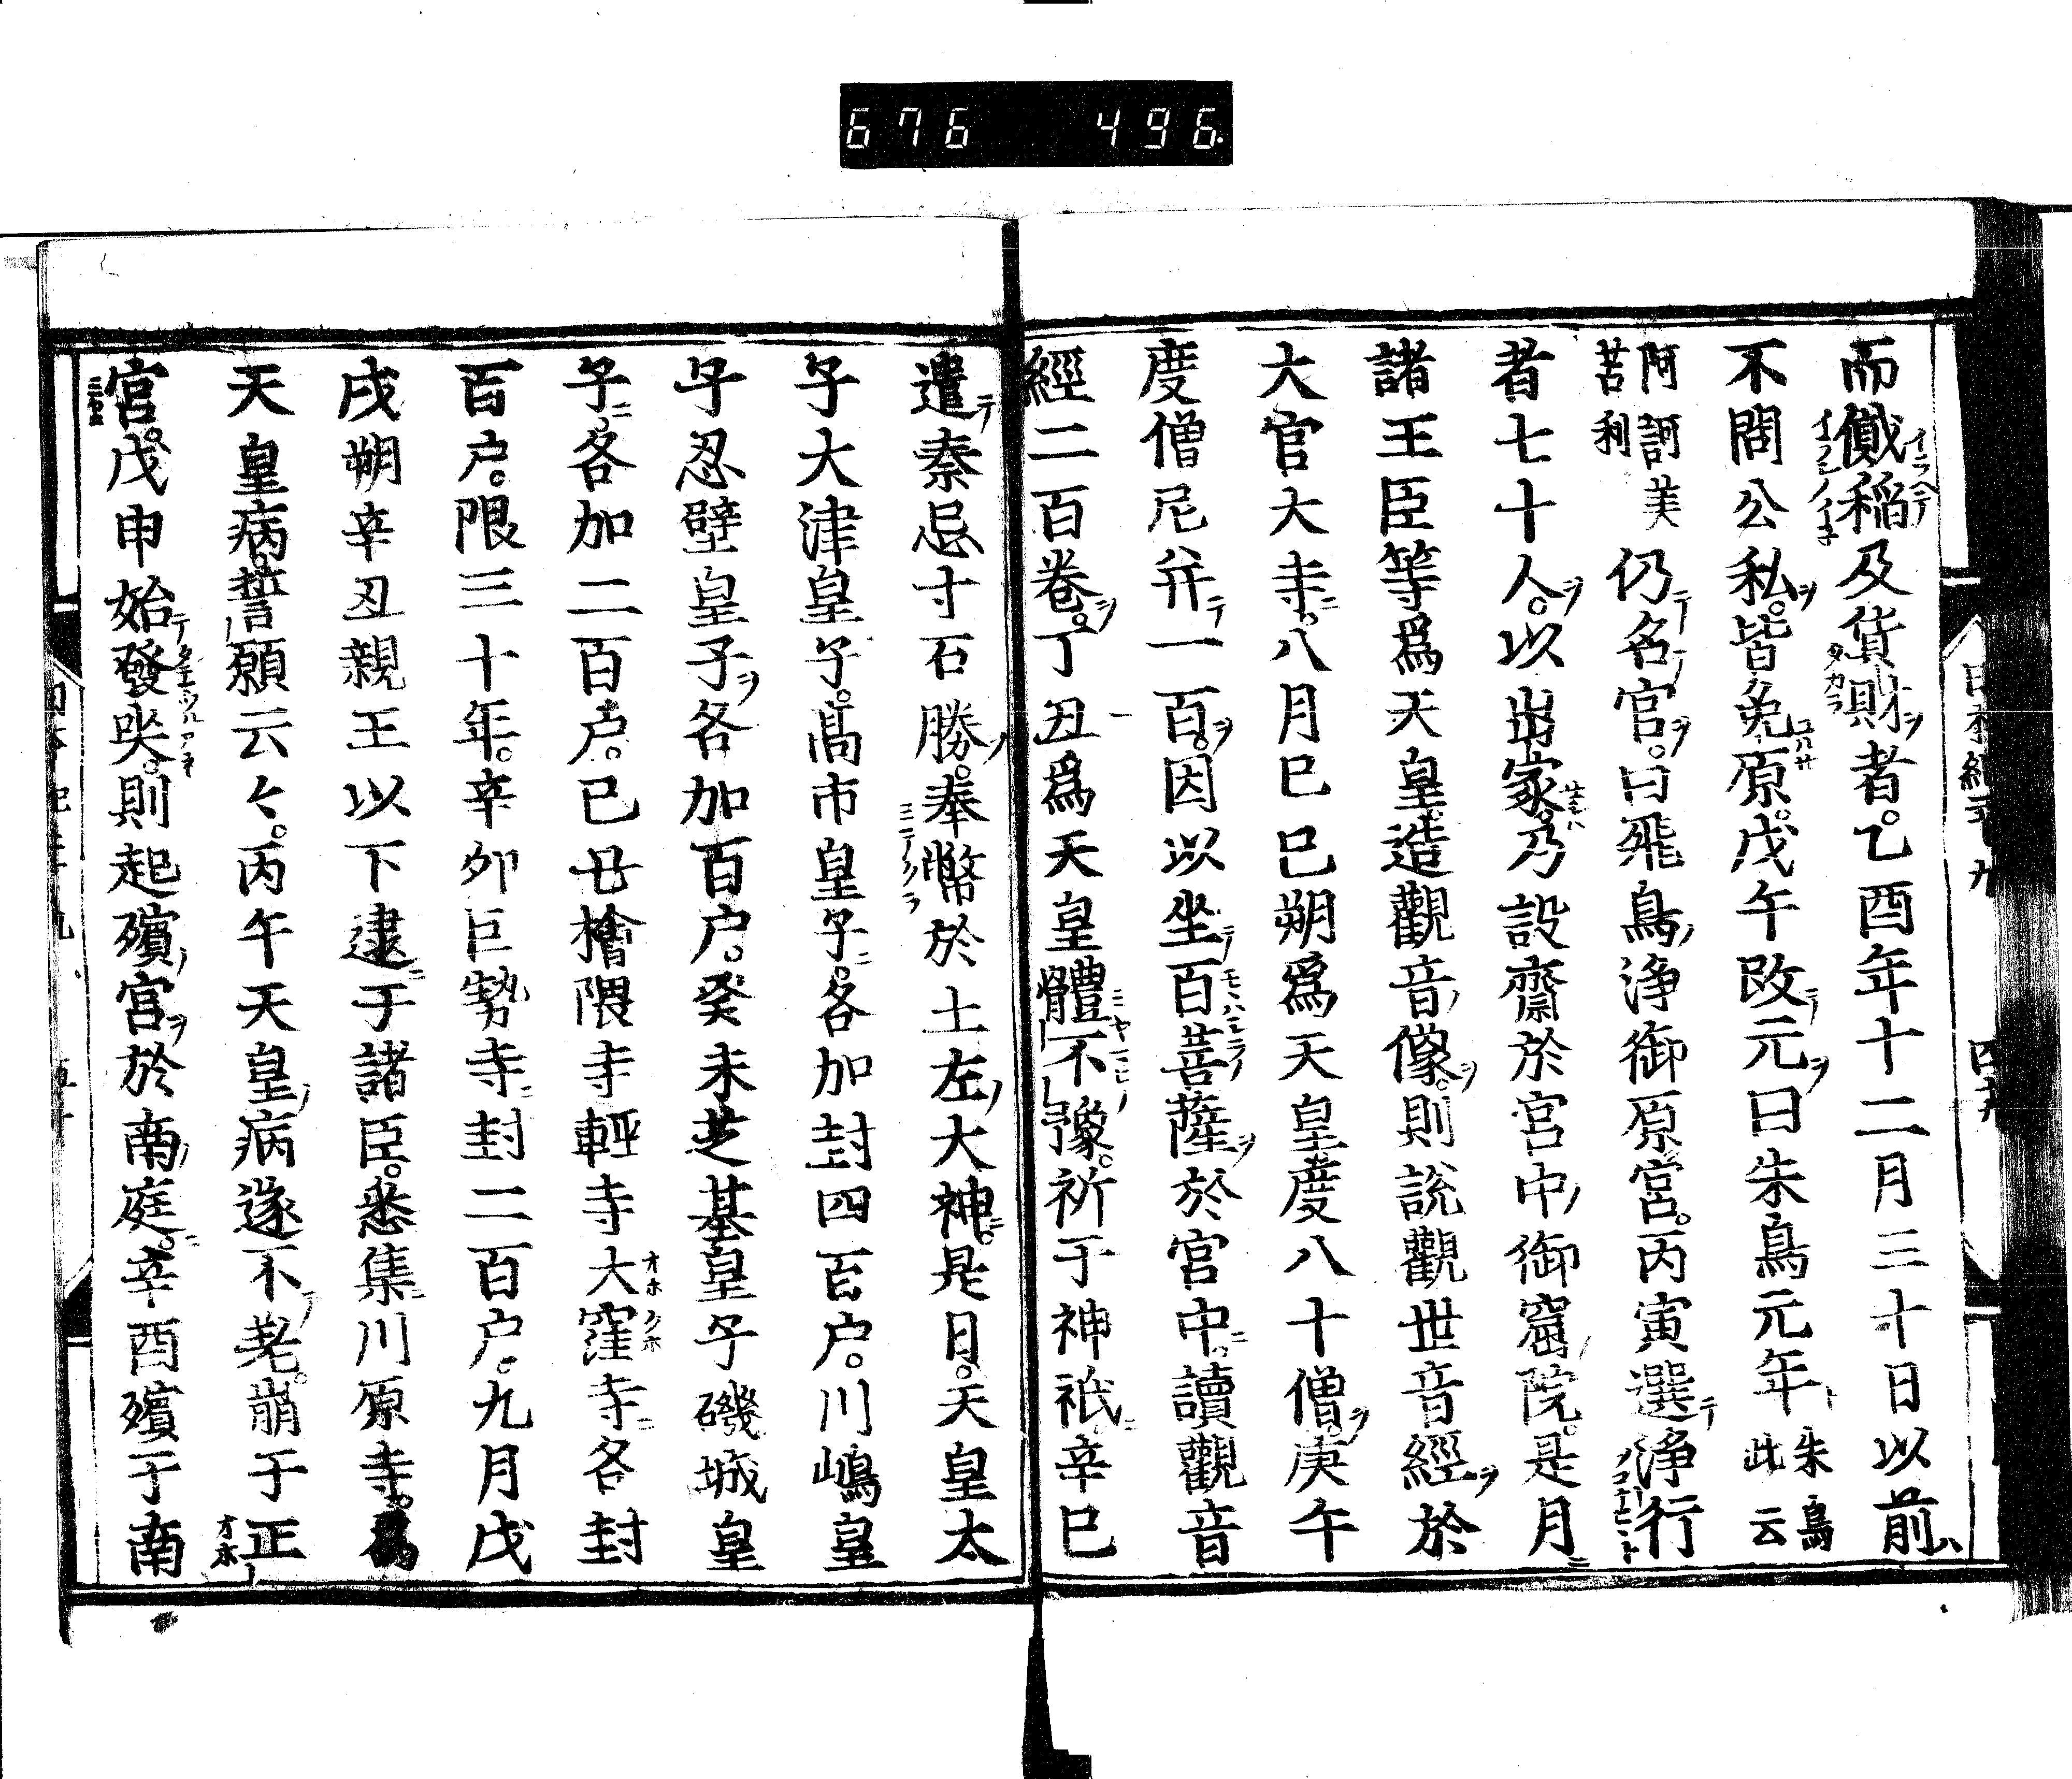 676 496
而儎稲及貨財者。乙酉年十二月三十日以前
不問公私。皆免原。戊午改元曰朱鳥元年 朱鳥此云
阿訶美苔利 仍名宮。曰飛鳥浄御原宮。丙寅選浄行
者七十人。以出家。乃設齋於宮中御窟院。是月
諸王臣等爲天皇。造觀音像。則説觀世音經於
大官大寺。八月己巳朔爲天皇。度八十僧。庚午
度僧尼并一百。因以坐百菩薩於宮中。讀觀音
經二百巻。丁丑爲天皇體不豫。祈于神祇辛巳
遣秦忌寸石勝。奉幣於土左大神。是日。天皇太
子大津皇子。髙市皇子。各加封四百戸。川嶋皇
子忍壁皇子各加百戸。癸未芝基皇子磯城皇
子。各加二百戸。己丑檜隈寺軽寺大窪寺各封
百戸。限三十年。辛卯巨勢寺封二百戸。九月戊
戌朔辛丑親王以下逮于諸臣。悉集川原寺。爲
天皇病。誓願云々。丙午天皇病遂不差。崩于正
宮。戊申始發哭。則起殯宮於南庭。辛酉殯于南